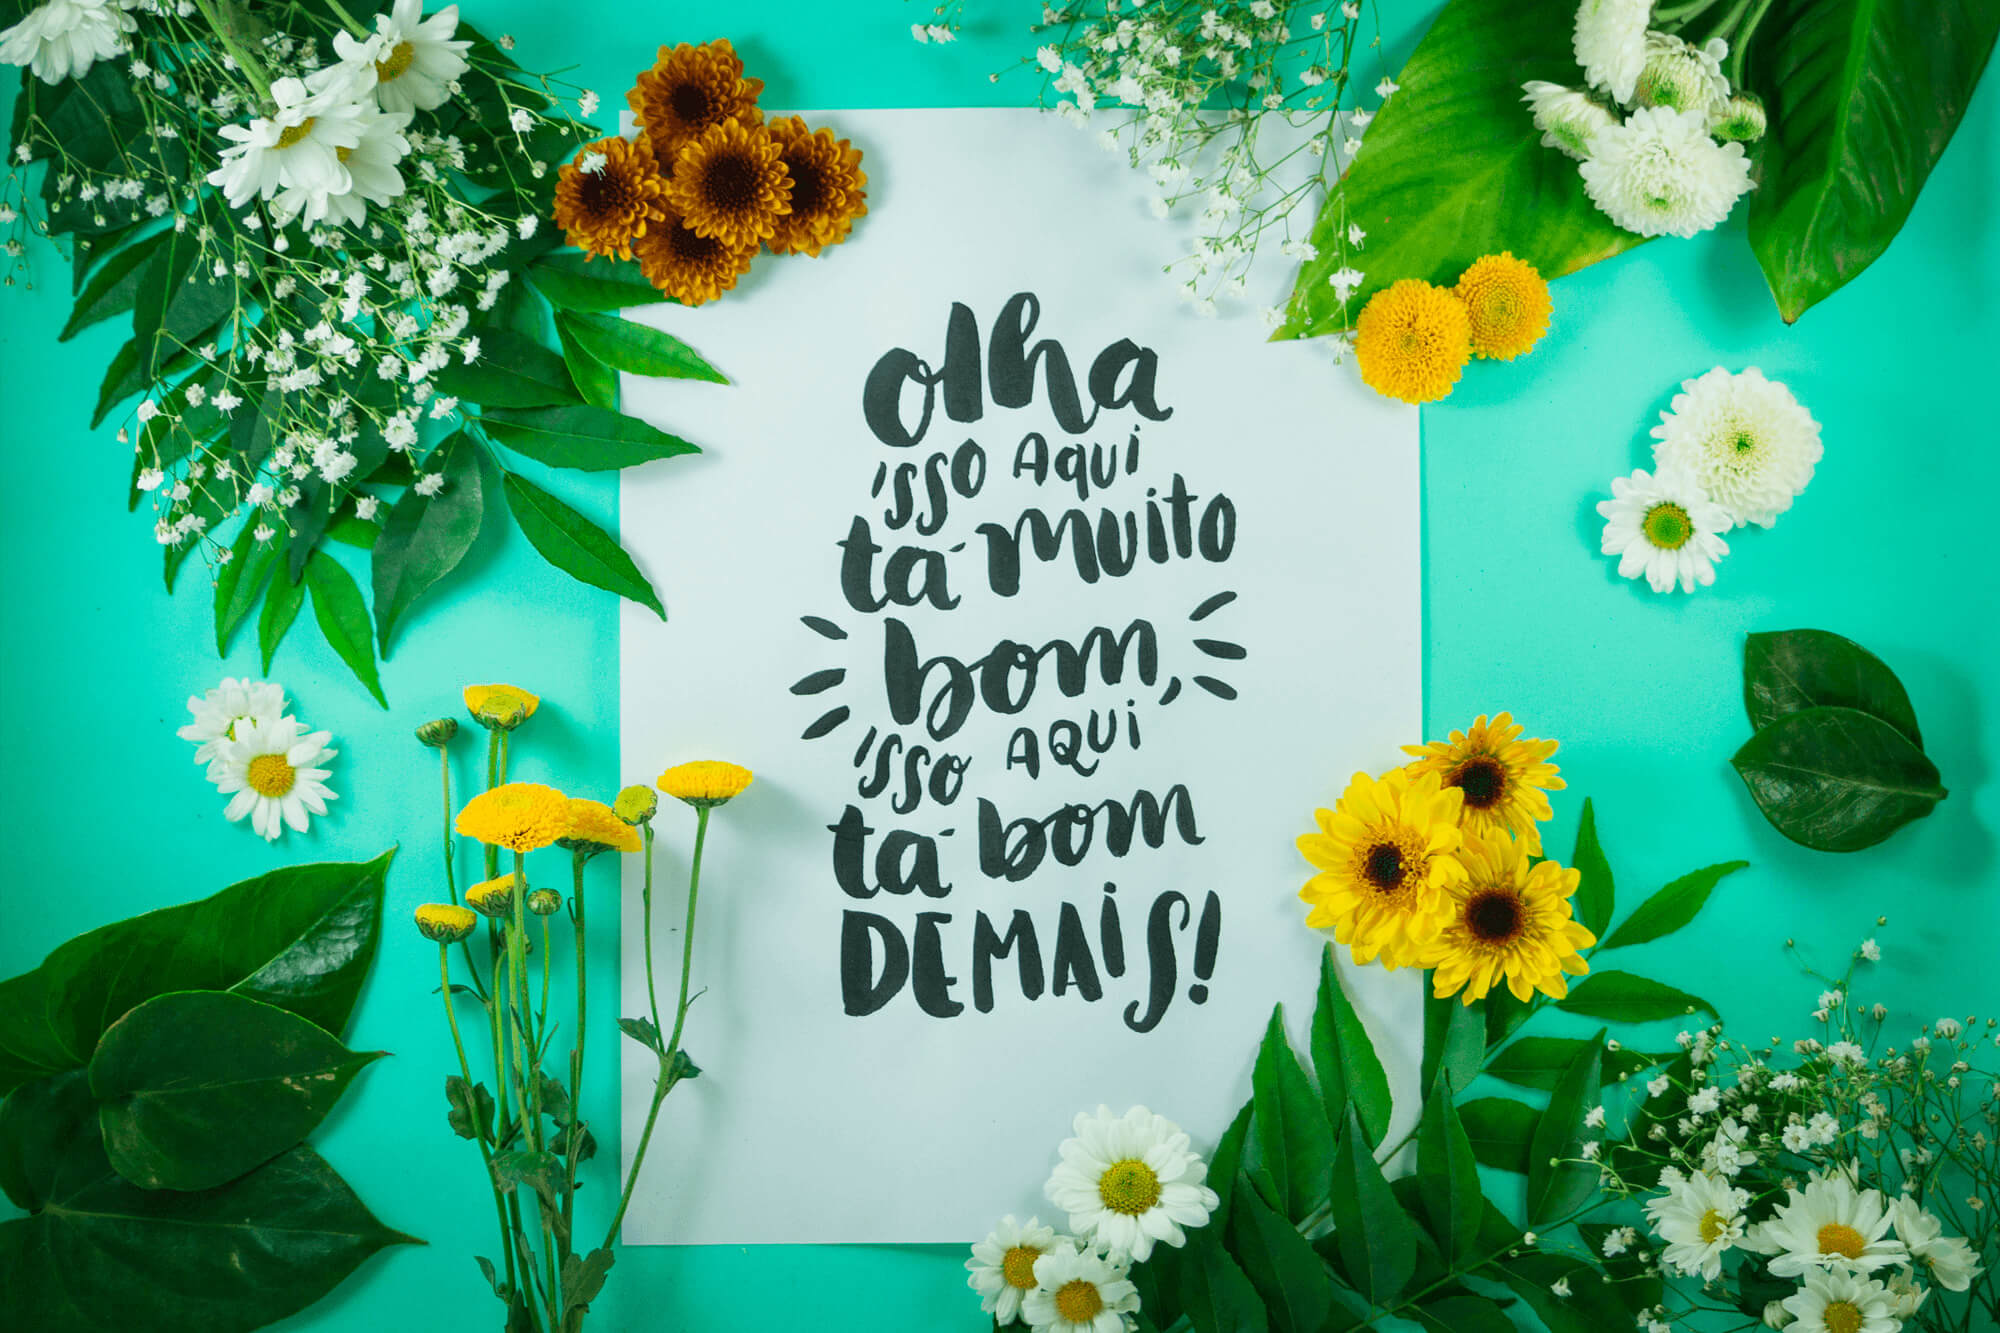 olha
isso AQUI
tá muito
bom,
isso AQUI
tá bom
DEMAIS!